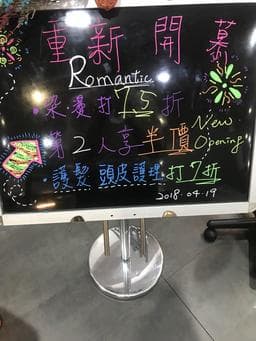 重新開幕
Romantic
染.燙打75折
第2人享半價
New
Opening
護髮 頭皮護理 打7折
2018.04.19